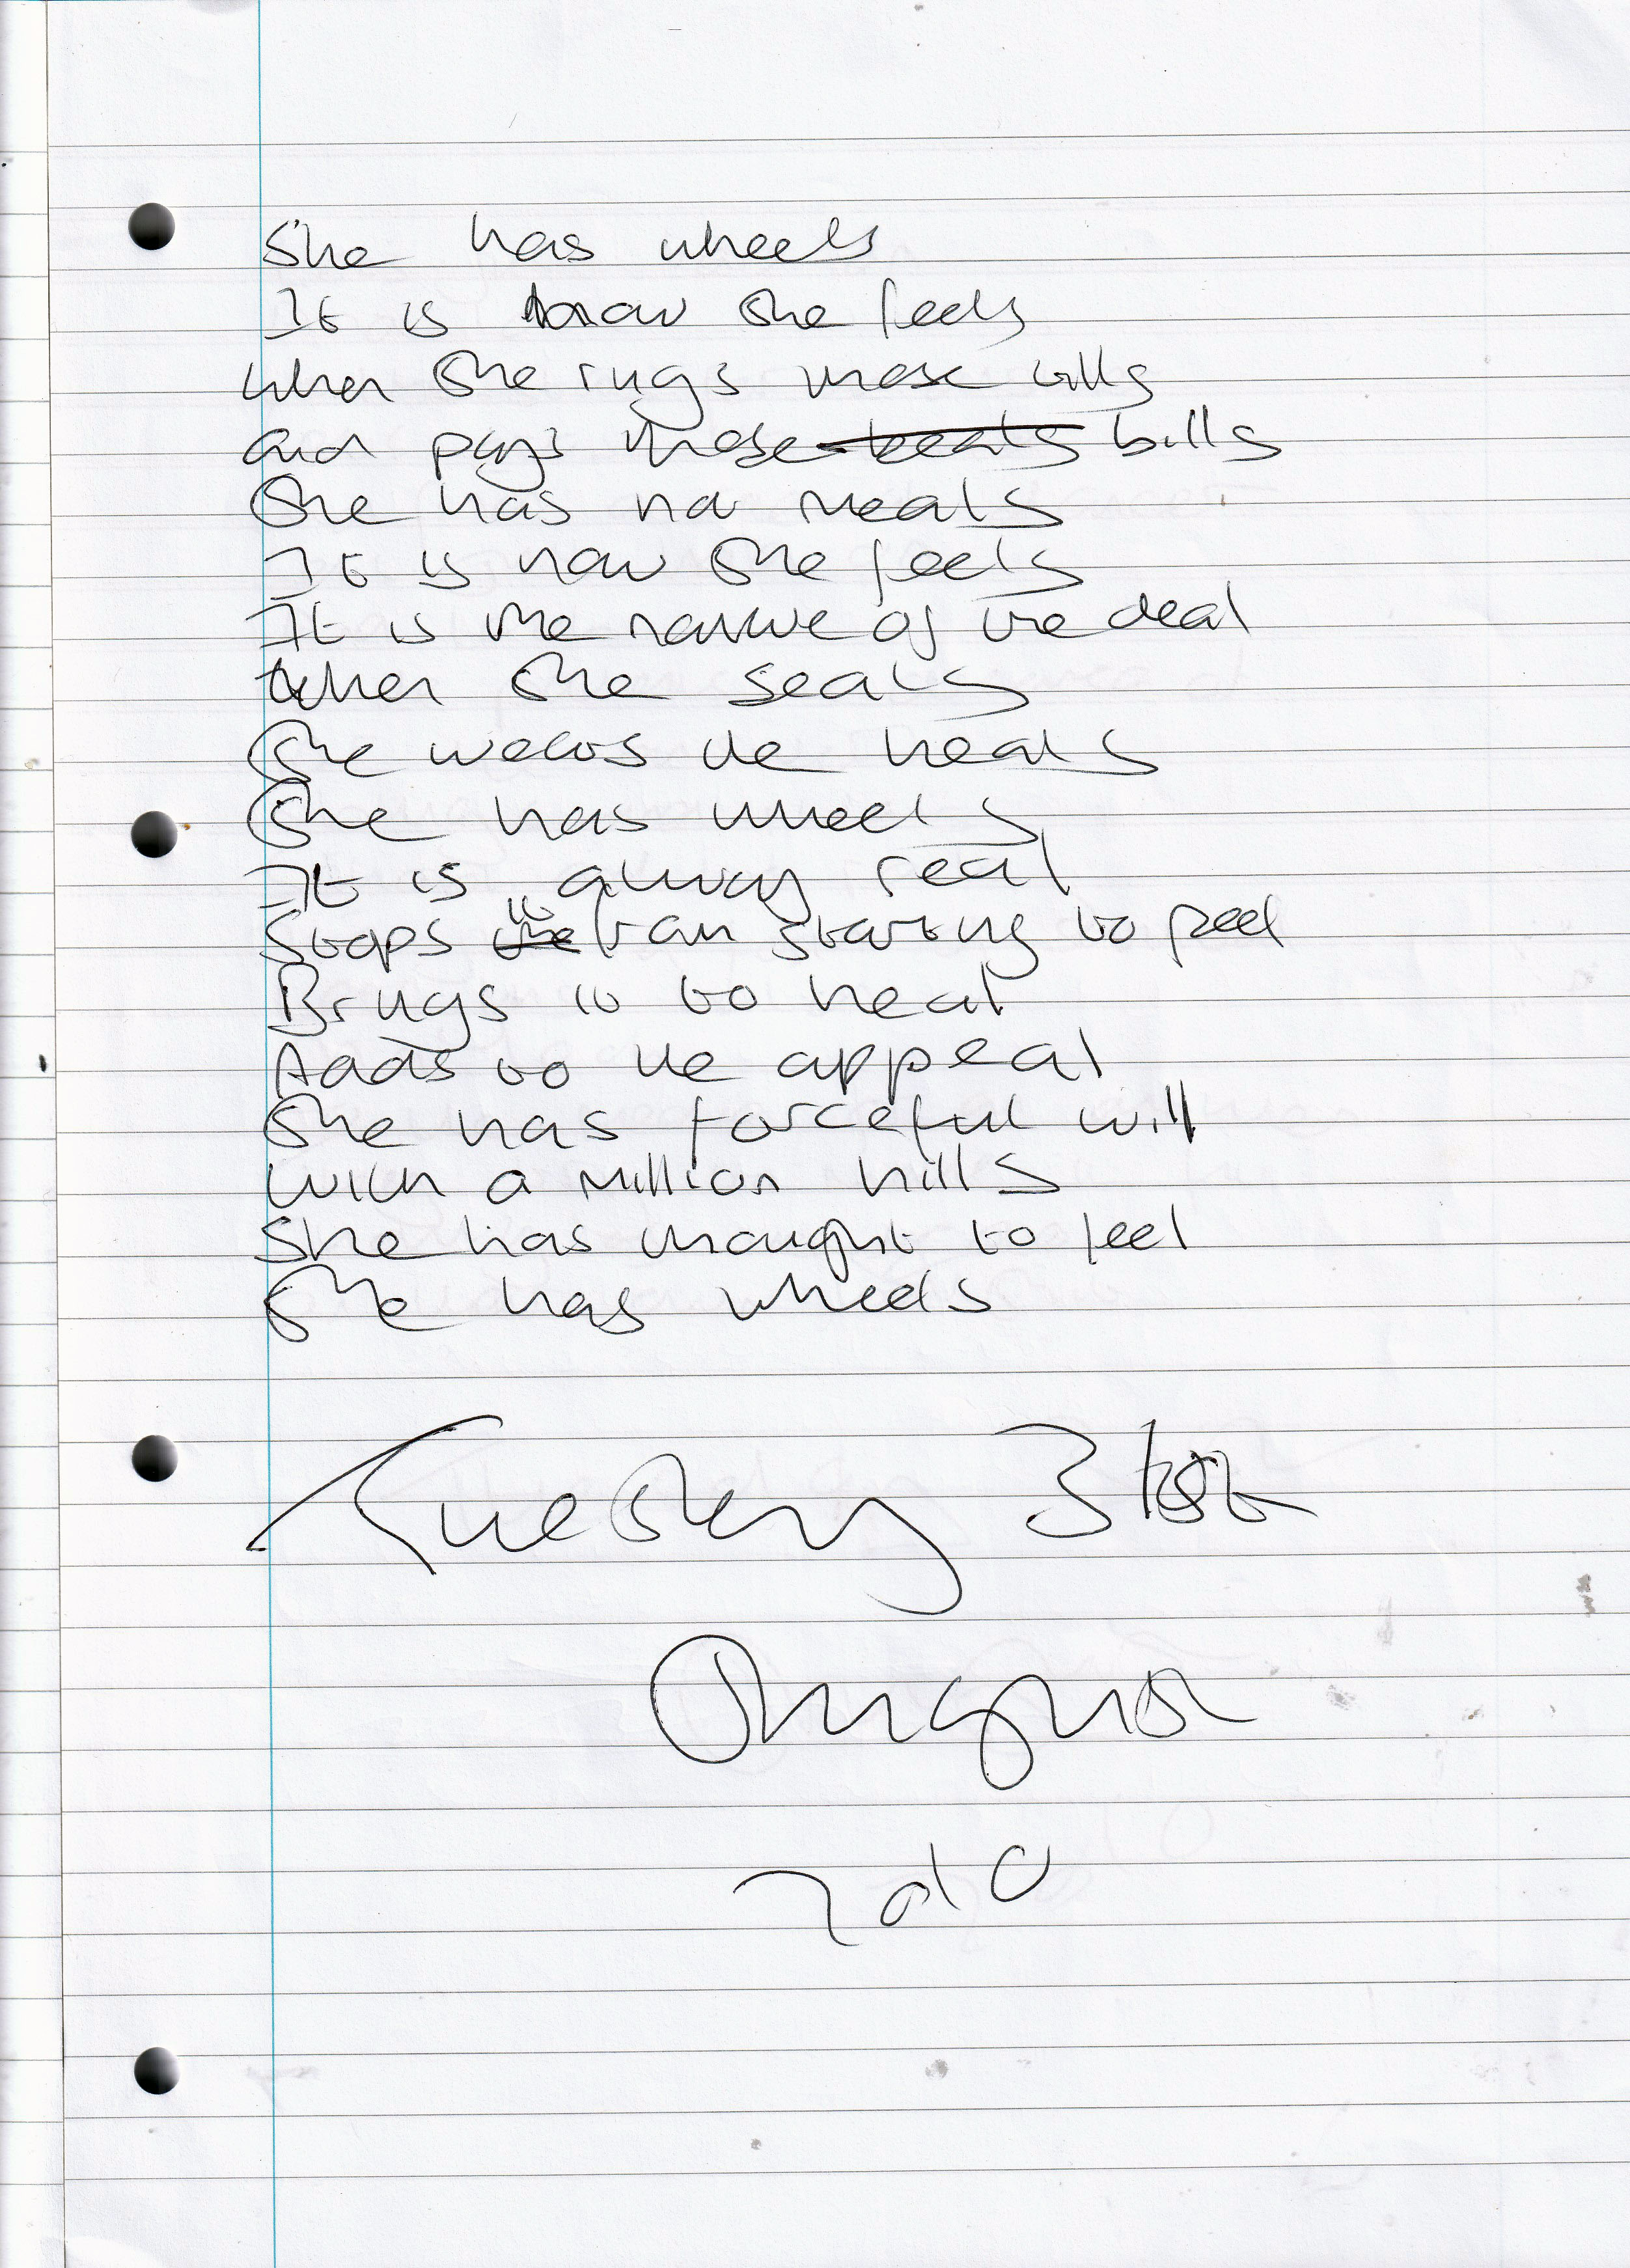 She has wheels
It is how she feels
when she rings those bills
and pays those beats bills
She has no meals
It is how she feels
It is the nature of the deal
When she seals
She wears the heals
She has wheels
It is always real
Stops it the from starting to peel
Brings it to heal
Adds to the appeal
She has forceful will
with a million hills
She has thought to feel
She has wheels
Tuesday 31st
August
2010